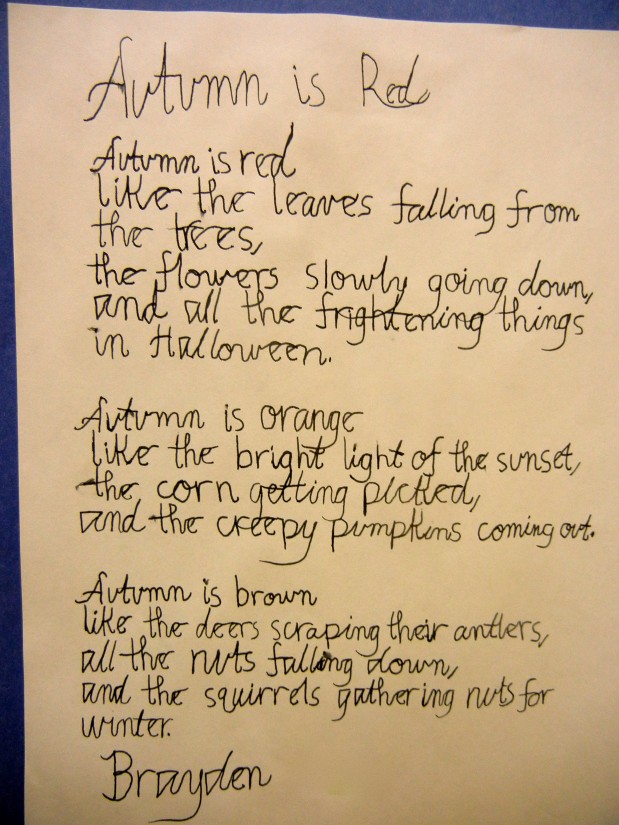 Autumn is Red
Autumn is red
like the leaves falling from
the trees,
the flowers slowly going down,
and all the frightening things
in Halloween.
Autumn is orange
like the bright light of the sunset,
the corn getting picked,
and the creepy pumpkins coming out.
Autumn is brown
like the deers scraping their antlers,
all the nuts falling down,
and the squirrels gathering nuts for
winter.
Brayden